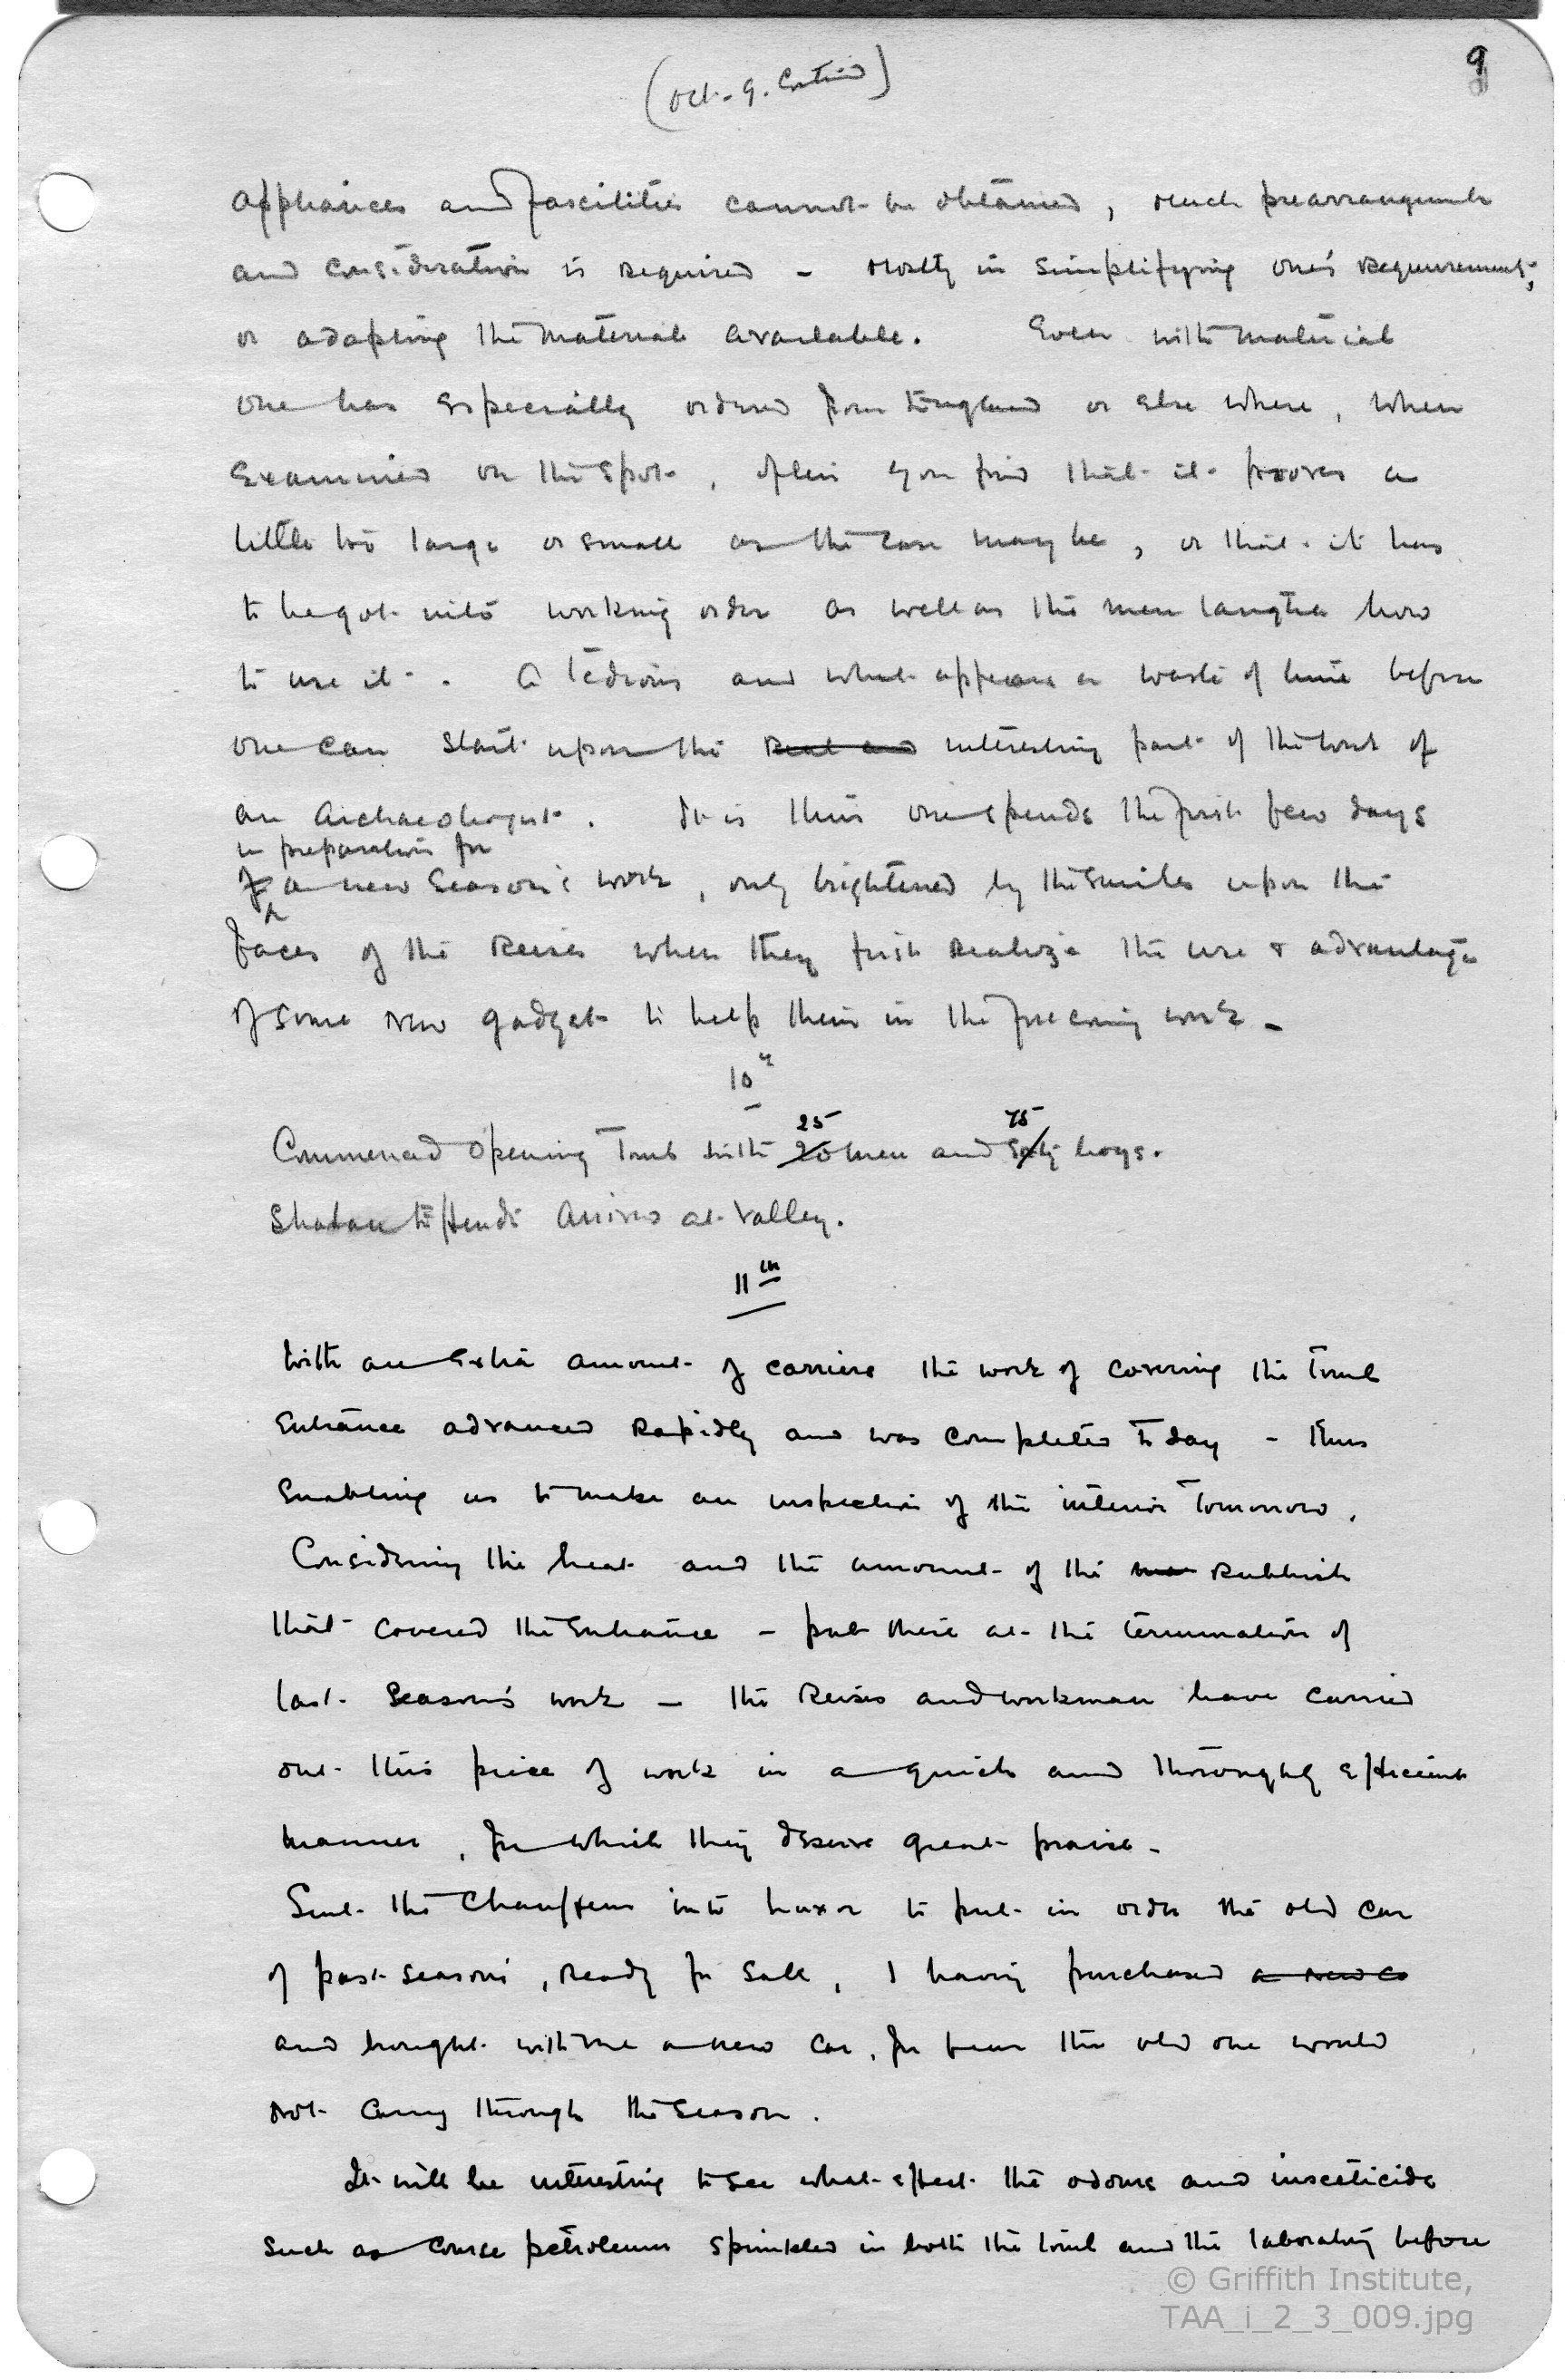 9
(Oct. 9. Contind)
appliances and fascilities cannot be obtained, much prearrangement
and consideration is required - mostly in simplifying one's requirements,
or adapting the material available. Even with material
one has especially ordered from England or else where, when
examined on the spot, often you find that it prooves a
little too large or small as the case may be, or that it has
to be got into working order as well as the men taught how
to use it. A tedious and what appears a waste of time before
one can start upon the real and interesting part of the work of
an Archaeologist. It is thus one spends the first few days
in preparation for
of a new season's work, only brightened by the smiles upon the
faces of the Reises when they first realize the use & advantage
of some new gadget to help them in the forecoming work -
10th
25 75
Commenced opening Tomb with 20 men and sixty boys.
Shaban Effendi arrived at Valley.
11th
With an extra amount of carriers the work of covering the Tomb
Entrance advanced rapidly and was completed to day - thus
enabling us to make an inspection of the interior tomorrow.
Considering the heat and the amount of the rubbish
that covered the entrance - put there at the termination of
last season's work - the Reises and workman have carried
out this piece of work in a quick and thoroughly efficient
manner, for which they deserve great praise -
Sent the Chauffeur into Luxor to put in order the old car
of past seasons, ready for sale, I having purchased a new ca
and brought with me a new car, for fear the old one would
not carry through the season.
It will be interesting to see what effect the odours and insecticide
such as course petroleum sprinkled in both the tomb and the laboratory before
© Griffith Institute,
TAA_i_2_3_009.jpg